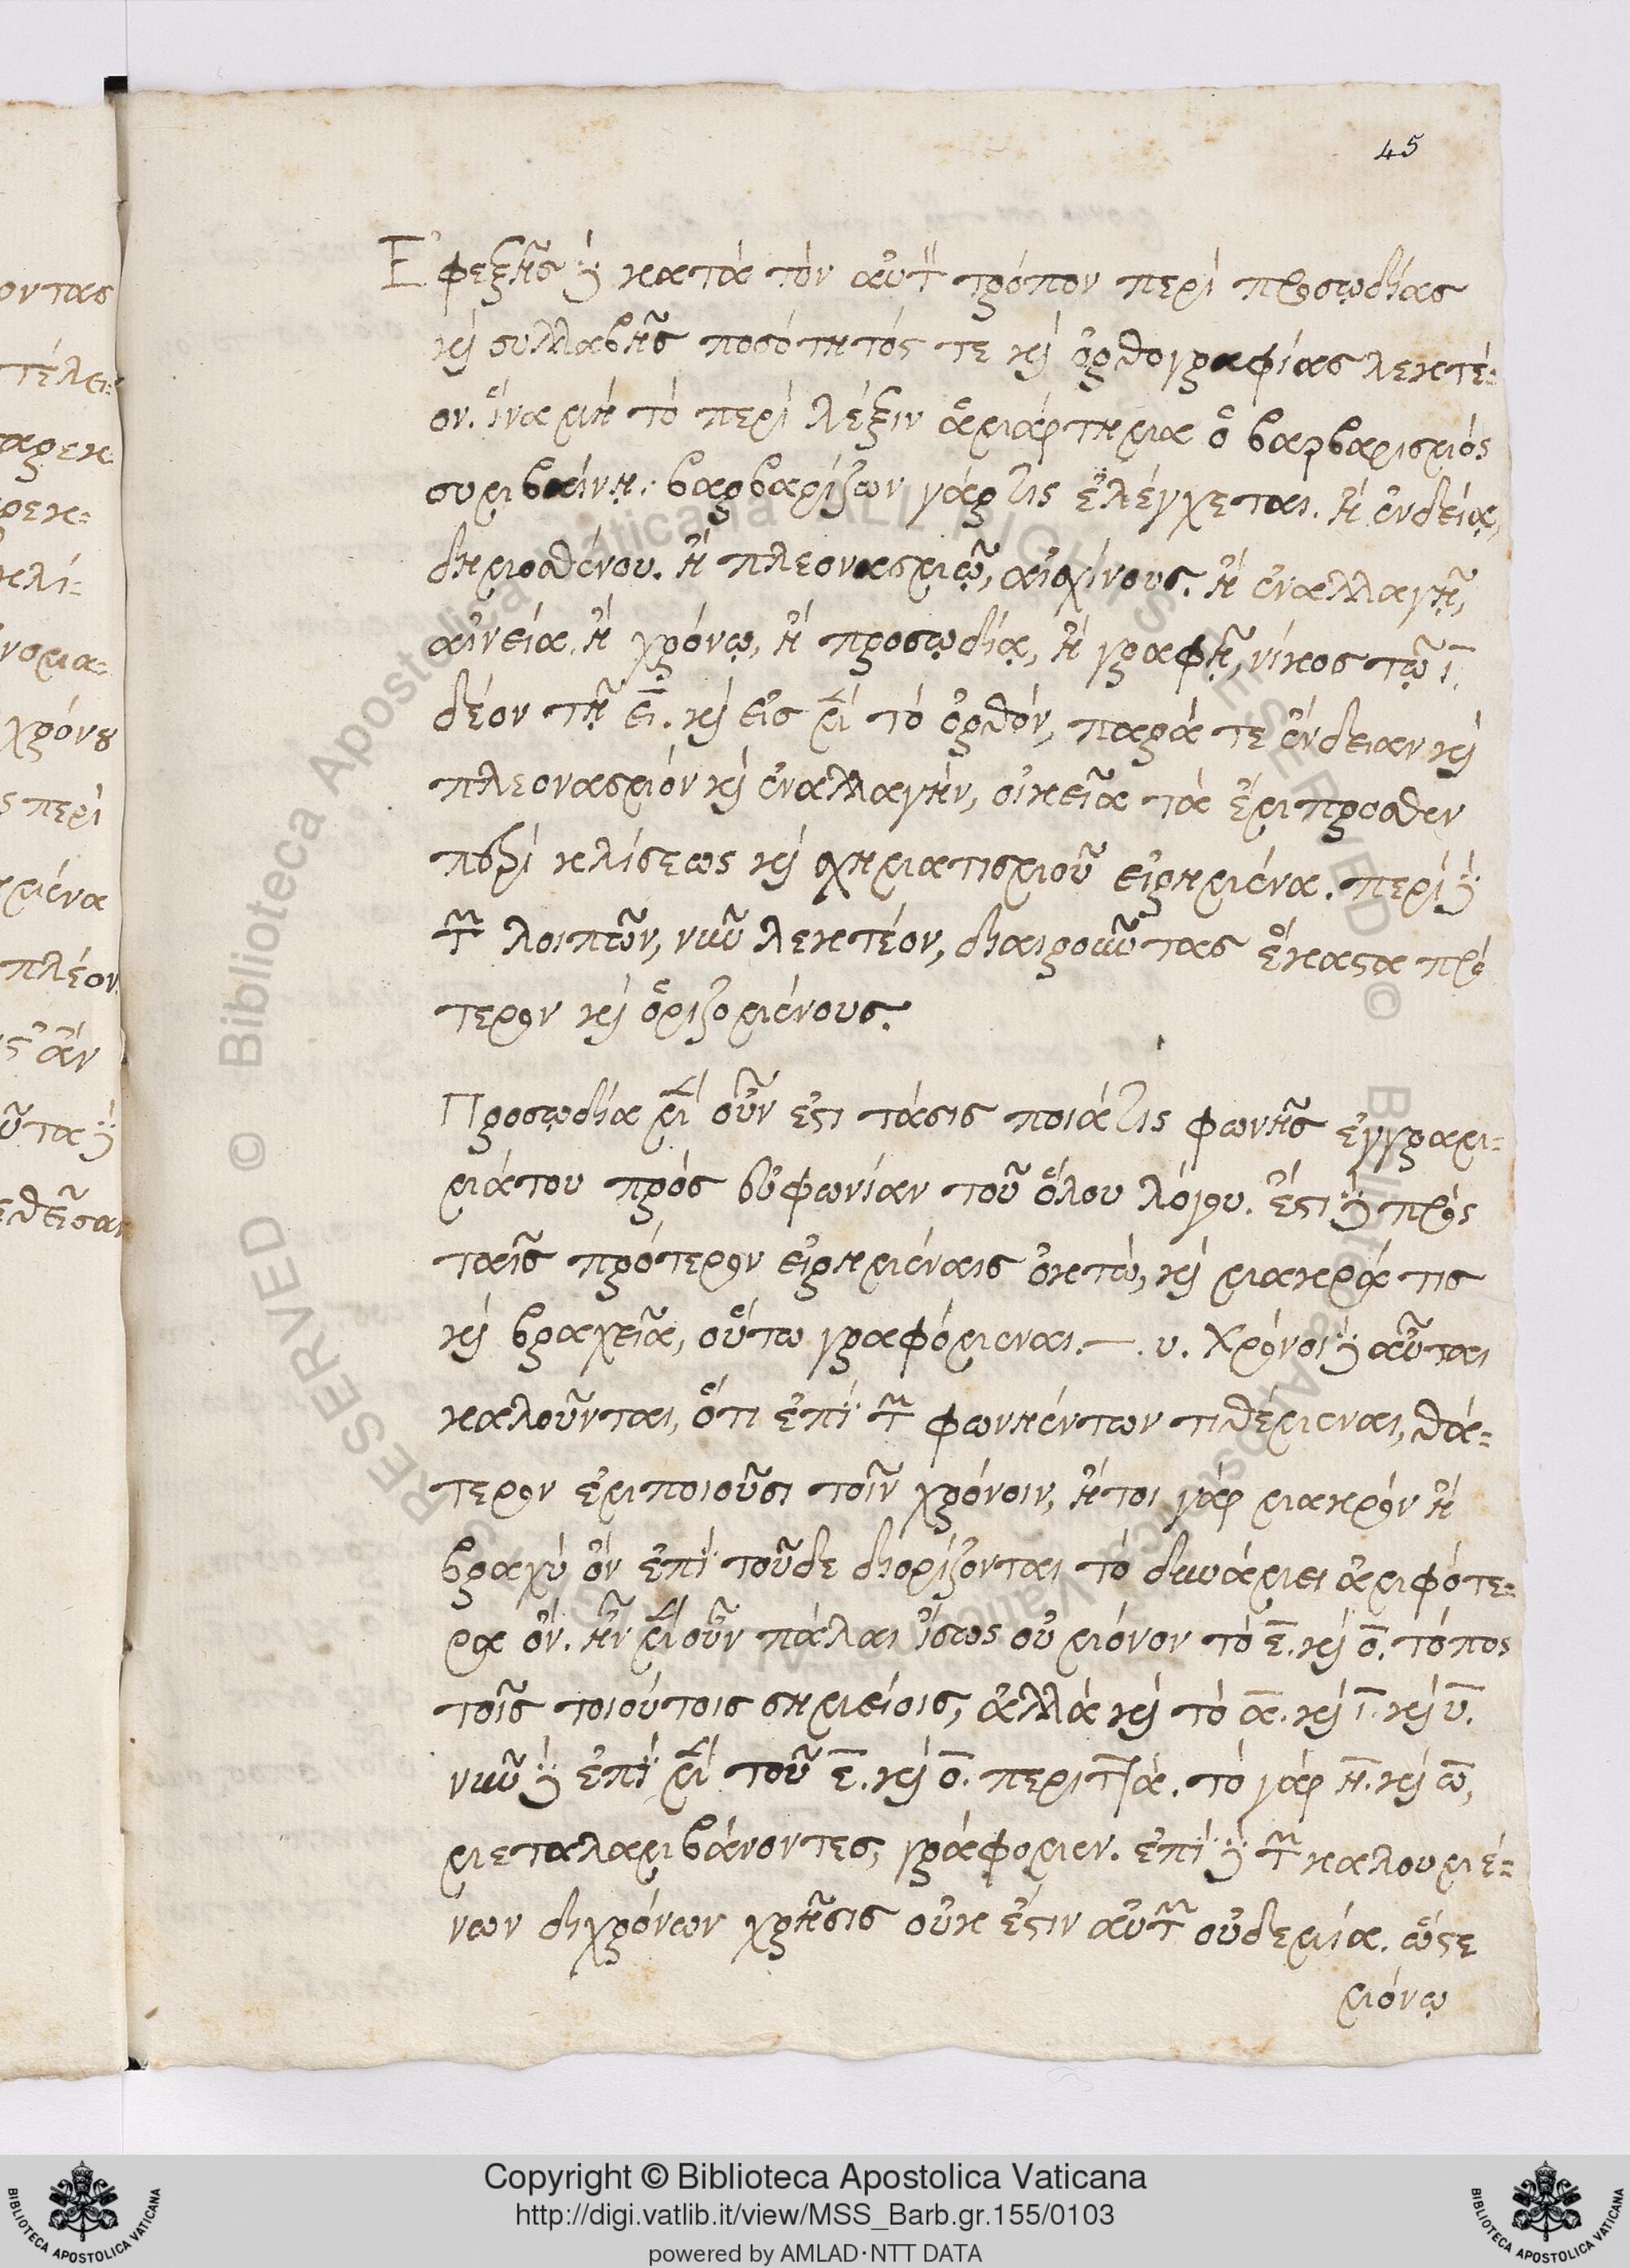 45
Ἐφεξῆς δὲ κατὰ τὸν αὐτὸν τρόπον περὶ προσῳδίας
καὶ συλλαβῆς ποσότητός τε καὶ ὀρθογραφίας λεκτέ=
ον. ἵνα μὴ τὸ περὶ λέξιν ἁμάρτημα ὁ βαρβαρισμός
συμβαίνῃ. βαρβαρίζων γάρ τις ἐλέγχεται. ἢ ἐνδείᾳ,
δημοσθένου. ἢ πλεονασμῷ, αἰσχίνους. ἢ ἐναλλαγῇ,
αἰνεία. ἢ χρόνῳ, ἢ προσῳδίᾳ, ἢ γραφῇ, νίκος τῷ ι.
δέον τῇ ει. καὶ εἰς μὲν τὸ ὀρθόν, παρά τε ἔνδειαν καὶ
πλεονασμόν καὶ ἐναλλαγήν, οἰκεῖα τὰ ἔμπροσθεν
περὶ κλίσεως καὶ σχηματισμοῦ εἰρημένα. περὶ δὲ
τῶν λοιπῶν, νῦν λεκτέον, διαιροῦντας ἕκαστα πρό
τερον καὶ ὁριζομένους.
Προσῳδία μὲν οὖν ἐστι τάσις ποιά τις φωνῆς ἐγγραμ=
μάτου πρὸς εὐφωνίαν τοῦ ὅλου λόγου. ἔστι δὲ πρὸς
ταῖς πρότερον εἰρημέναις ὀκτώ, καὶ μακρά τις
καὶ βραχεῖα, οὕτω γραφόμεναι. —. υ. Χρόνοι δὲ αὗται
καλοῦνται, ὅτι ἐπὶ τῶν φωνηέντων τιθέμεναι, θά=
τερον ἐμποιοῦσι τοῖν χρόνοιν, ἤτοι γὰρ μακρὸν ἢ
βραχὺ ὂν ἐπὶ τοῦδε διορίζονται τὸ δυνάμει ἀμφότε=
ρα ὄν. ἦν μὲν οὖν πάλαι ἴσως οὐ μόνον τὸ ε. καὶ ο. τόπος
τοῖς τοιούτοις σημείοις, ἀλλὰ καὶ τὸ α. καὶ ι. καὶ υ.
νῦν δὲ ἐπὶ μὲν τοῦ ε. καὶ ο. περιττά. τὸ γὰρ η. καὶ ω,
μεταλαμβάνοντες, γράφομεν. ἐπὶ δὲ τῶν καλουμέ=
νων διχρόνων χρῆσις οὐκ ἔστιν αὐτῶν οὐδεμία. ὥστε
μόνῳ
οντας
τέλει=
ρεκ=
κλί=
χρόνου
περὶ
μένα
πλέον
ἂν
Copyright © Biblioteca Apostolica Vaticana
http://digi.vatlib.it/view/MSS_Barb.gr.155/0103
powered by AMLAD·NTT DATA
BIBLIOTECA APOSTOLICA VATICANA
BIBLIOTECA APOSTOLICA VATICANA